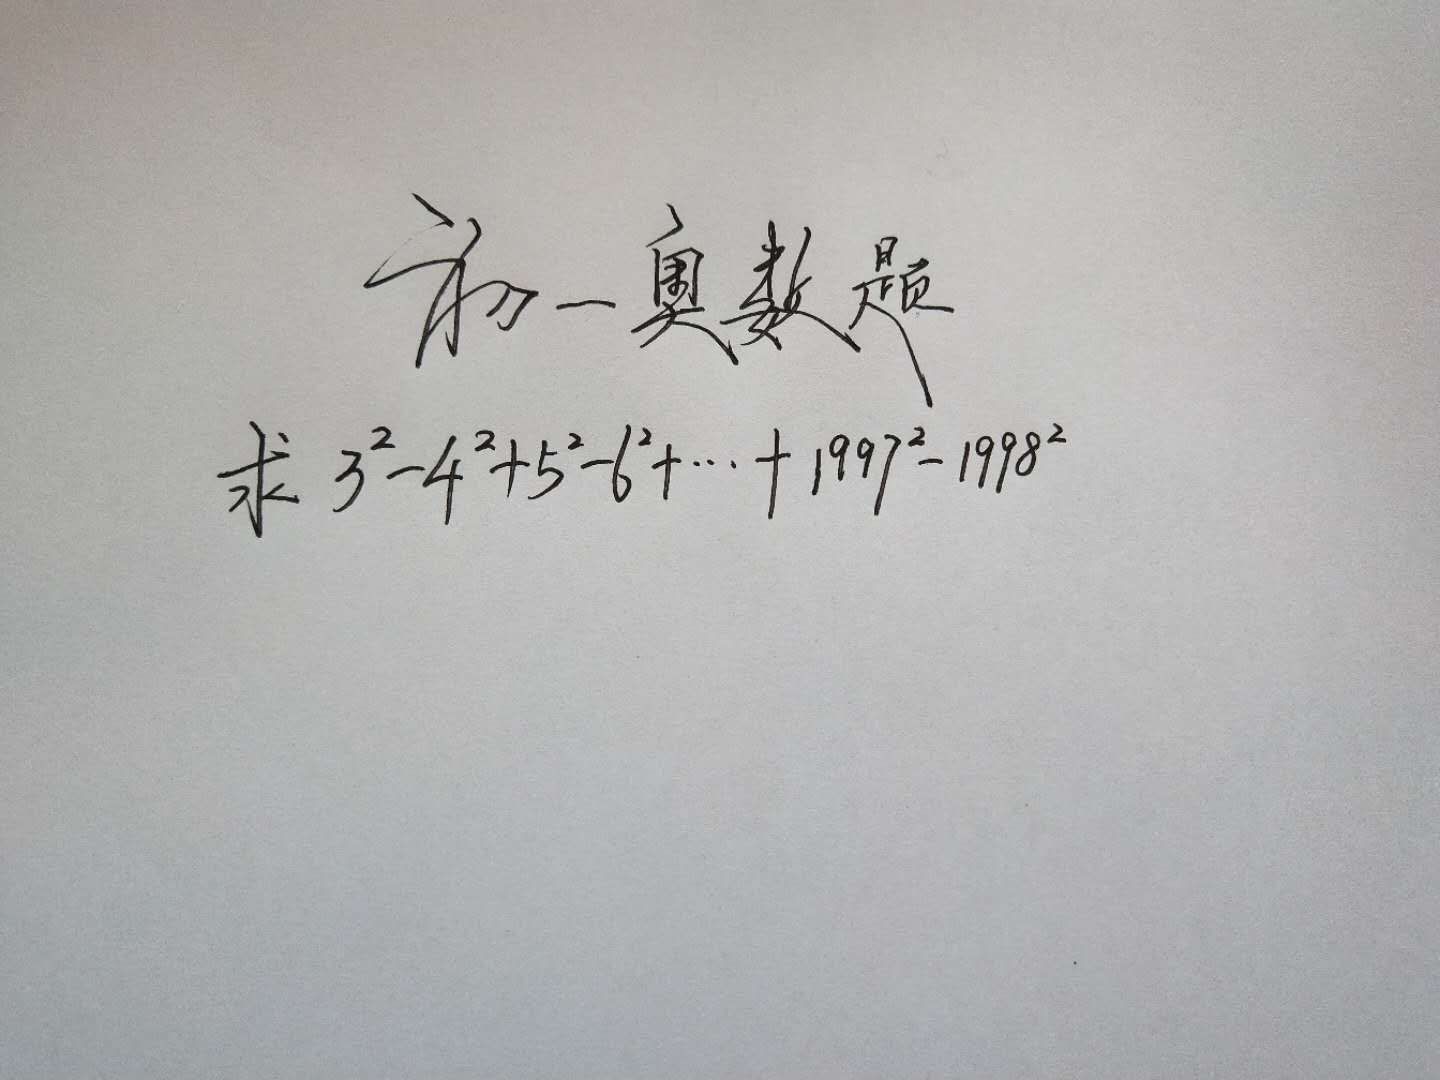 初一奥数题
求 3²-4²+5²-6²+…+1997²-1998²